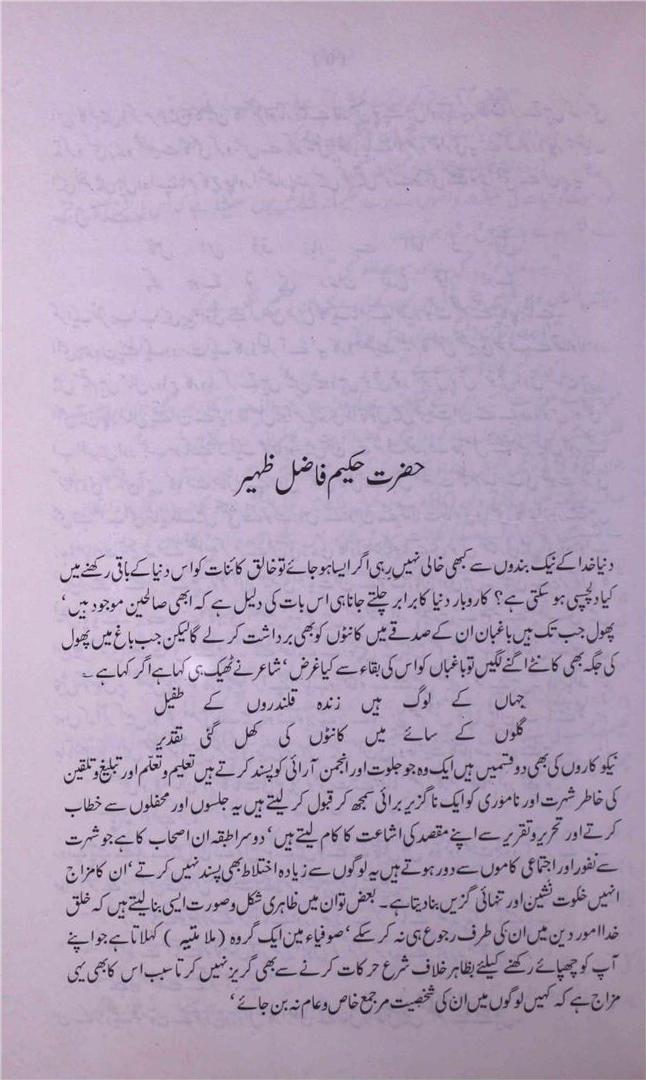 حضرت حکیم فاضل ظہیر
دنیا خدا کے نیک بندوں سے کبھی خالی نہیں رہی اگر ایسا ہو جائے تو خالق کائنات کو اس دنیا کے باقی رکھنے میں
کیا دلچسپی ہو سکتی ہے؟ کاروبار دنیا کا برابر چلتے جانا ہی اس بات کی دلیل ہے کہ ابھی صالحین موجود ہیں‘
پھول جب تک ہیں باغبان ان کے صدقے میں کانٹوں کو بھی برداشت کر لے گا لیکن جب باغ میں پھول
کی جگہ بھی کانٹے اگنے لگیں تو باغباں کو اس کی بقاء سے کیا غرض‘ شاعر نے ٹھیک ہی کہا ہے اگر کہا ہے ۔
جہاں کے لوگ ہیں زندہ قلندروں کے طفیل
گلوں کے سائے میں کانٹوں کی کھل گئی تقدیر
نیکوکاروں کی بھی دو قسمیں ہیں ایک وہ جو جلوت اور انجمن آرائی کو پسند کرتے ہیں تعلیم و تعلم اور تبلیغ و تلقین
کی خاطر شہرت اور ناموری کو ایک ناگزیر برائی سمجھ کر قبول کر لیتے ہیں یہ جلسوں اور محفلوں سے خطاب
کرتے اور تحریر و تقریر سے اپنے مقصد کی اشاعت کا کام لیتے ہیں‘ دوسرا طبقہ ان اصحاب کا ہے جو شہرت
سے نفور اور اجتماعی کاموں سے دور ہوتے ہیں یہ لوگوں سے زیادہ اختلاط بھی پسند نہیں کرتے‘ ان کا مزاج
انہیں خلوت نشین اور تنہائی گزیں بنا دیتا ہے۔ بعض تو ان میں ظاہری شکل و صورت ایسی بنا لیتے ہیں کہ خلق
خدا امور دین میں ان کی طرف رجوع ہی نہ کر سکے‘ صوفیاء میں ایک گروہ (ملامتیہ) کہلاتا ہے جو اپنے
آپ کو چھپائے رکھنے کیلئے بظاہر خلاف شرع حرکات کرنے سے بھی گریز نہیں کرتا سبب اس کا بھی یہی
مزاج ہے کہ کہیں لوگوں میں ان کی شخصیت مرجع خاص و عام نہ بن جائے‘